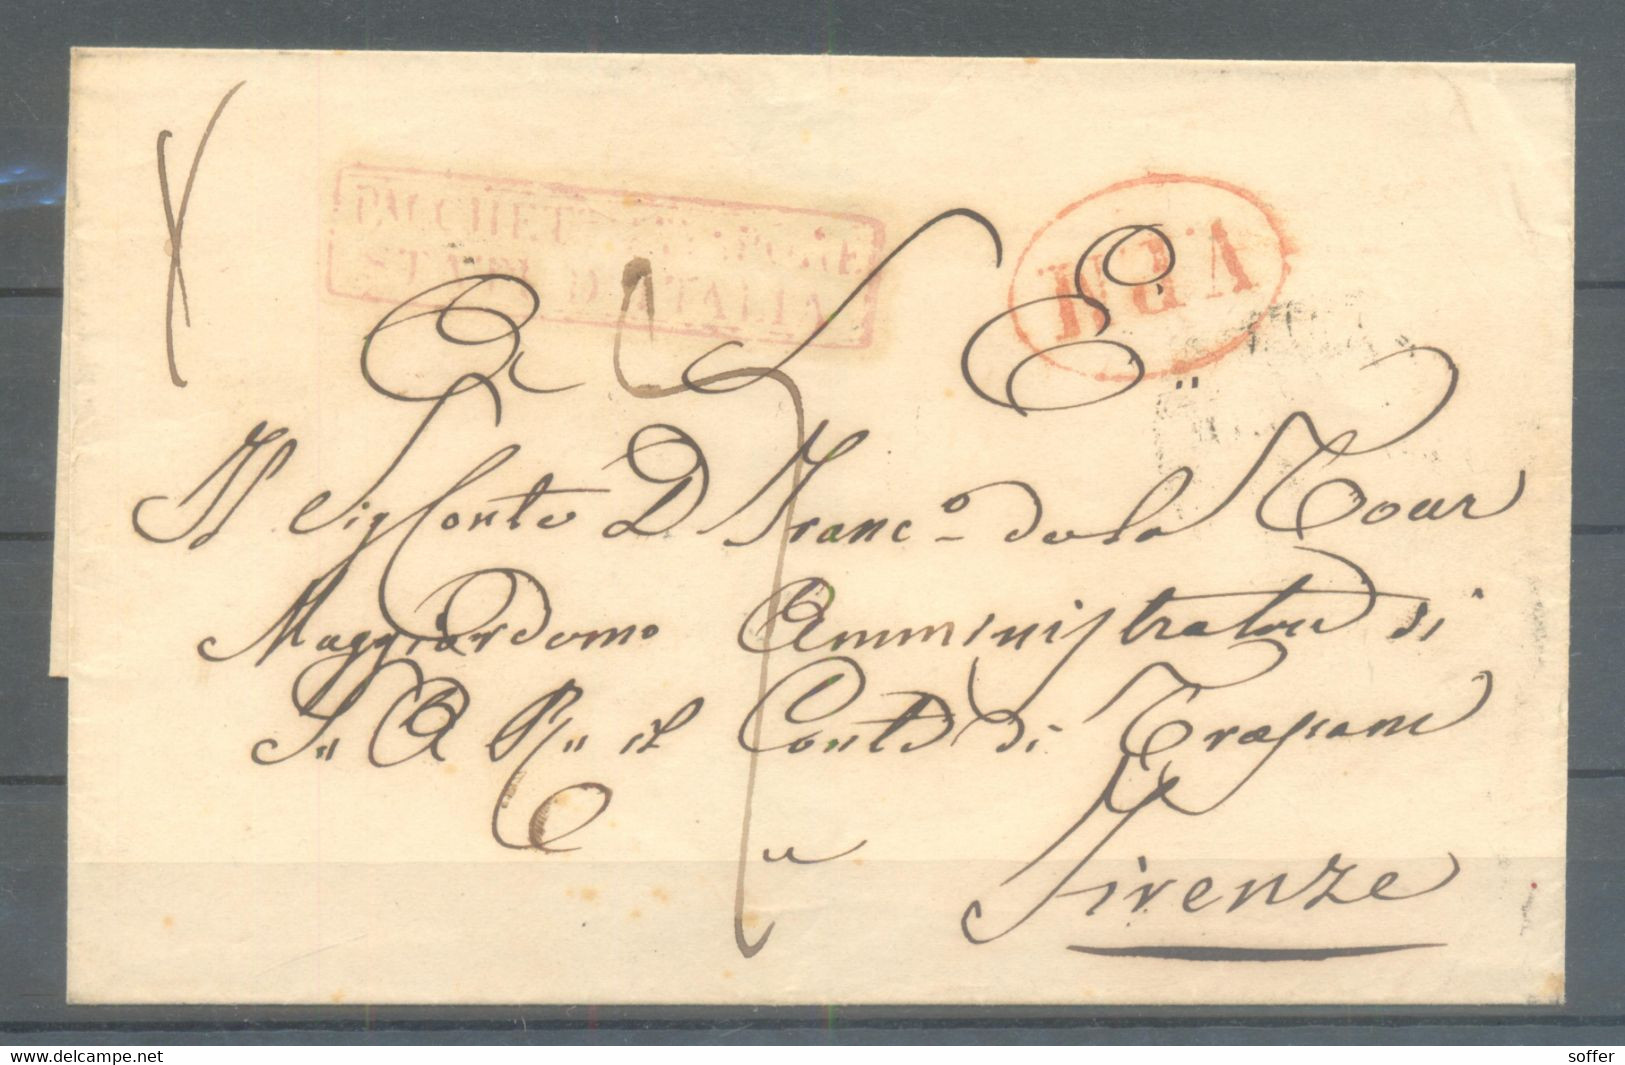 PACCHETTI A VAPORE
STATI D'ITALIA
V.P.M
A S E
Il Sig Conte D Franc.o de la Tour
Maggiordomo Amministratore di
S„ A R„ il Conte di Trapani
Firenze
www.delcampe.net
soffer